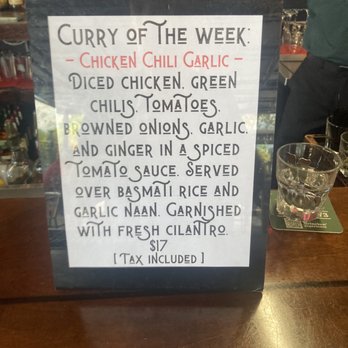 CURRY OF THE WEEK:
- CHICKEN CHILI GARLIC -
DICED CHICKEN, GREEN
CHILIS, TOMATOES,
BROWNED ONIONS, GARLIC,
AND GINGER IN A SPICED
TOMATO SAUCE. SERVED
OVER BASMATI RICE AND
GARLIC NAAN. GARNISHED
WITH FRESH CILANTRO.
$17
[ TAX INCLUDED ]